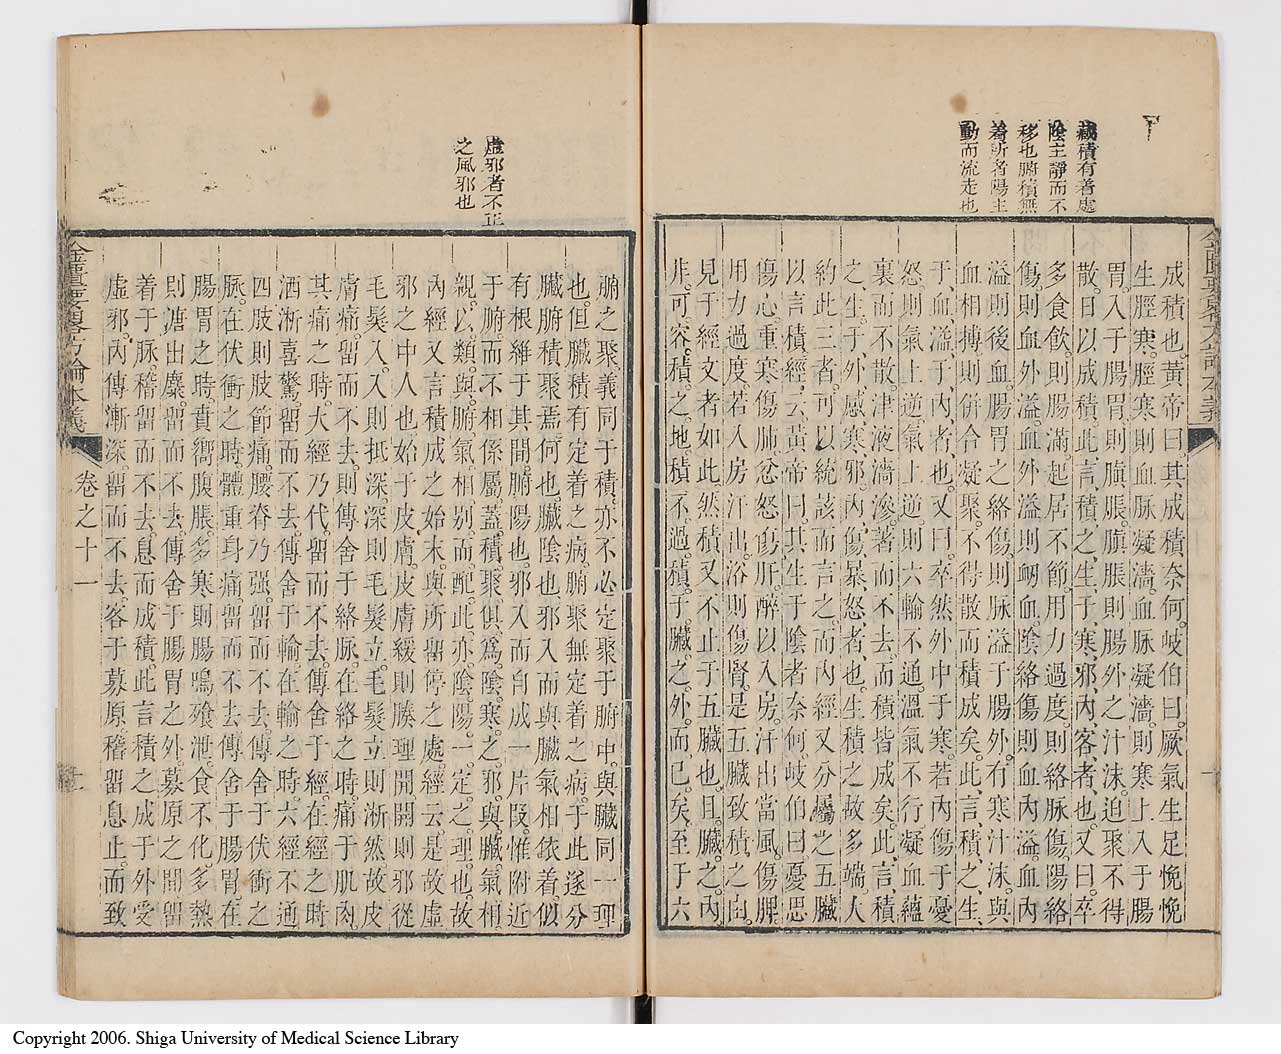 臓積有着處
陰主靜而不
移也腑積無
着所者陽主
動而流走也
成積也黃帝曰其成積奈何岐伯曰厥氣生足悗悗
生脛寒脛寒則血脉凝濇血脉凝濇則寒上入于腸
胃入于腸胃則䐜脹䐜脹則腸外之汁沫迫聚不得
散日以成積此言積之生于寒邪內客者也又曰卒
多食飲則腸滿起居不節用力過度則絡脉傷陽絡
傷則血外溢血外溢則衂血陰絡傷則血內溢血內
溢則後血腸胃之絡傷則脉溢于腸外有寒汁沫與
血相搏則併合凝聚不得散而積成矣此言積之生
于血溢于內者也又曰卒然外中于寒若內傷于憂
怒則氣上逆氣上逆則六輸不通溫氣不行凝血蘊
裏而不散津液濇滲著而不去而積皆成矣此言積
之生于外感寒邪內傷暴怒者也生積之故多端大
約此三者可以統該而言之而內經又分屬之五臟
以言積經云黃帝曰其生于陰者奈何岐伯曰憂思
傷心重寒傷肺忿怒傷肝醉以入房汗出當風傷脾
用力過度若入房汗出浴則傷腎是五臟致積之由
見于經文者如此然積又不止于五臟也且臟之內
非可容積之地積不過積于臟之外而已矣至于六
虛邪者不正
之風邪也
腑之聚義同于積亦不必定聚于腑中與臟同一理
也但臟積有定着之病腑聚無定着之病于此遂分
臟腑積聚焉何也臟陰也邪入而與臟氣相依着似
有根維于其間腑陽也邪入而自成一片段惟附近
于腑而不相係屬蓋積聚俱爲陰寒之邪與臟氣相
親以類與腑氣相別而配此亦陰陽一定之理也故
內經又言積成之始末與所畱停之處經云是故虛
邪之中人也始于皮膚皮膚緩則腠理開開則邪從
毛髮入入則抵深深則毛髮立毛髮立則淅然故皮
膚痛畱而不去則傳舍于絡脉在絡之時痛于肌肉
其痛之時大經乃代畱而不去傳舍于經在經之時
洒淅喜驚畱而不去傳舍于輸在輸之時六經不通
四肢則肢節痛腰脊乃强畱而不去傳舍于伏衝之
脉在伏衝之時體重身痛畱而不去傳舍于腸胃在
腸胃之時賁嚮腹脹多寒則腸鳴飱泄食不化多熱
則溏出麋畱而不去傳舍于腸胃之外募原之間畱
着于脉稽畱而不去息而成積此言積之成于外受
虛邪內傳漸深畱而不去客于募原稽畱息止而致
金匱要畧方論本義
卷之十一
Copyright 2006. Shiga University of Medical Science Library